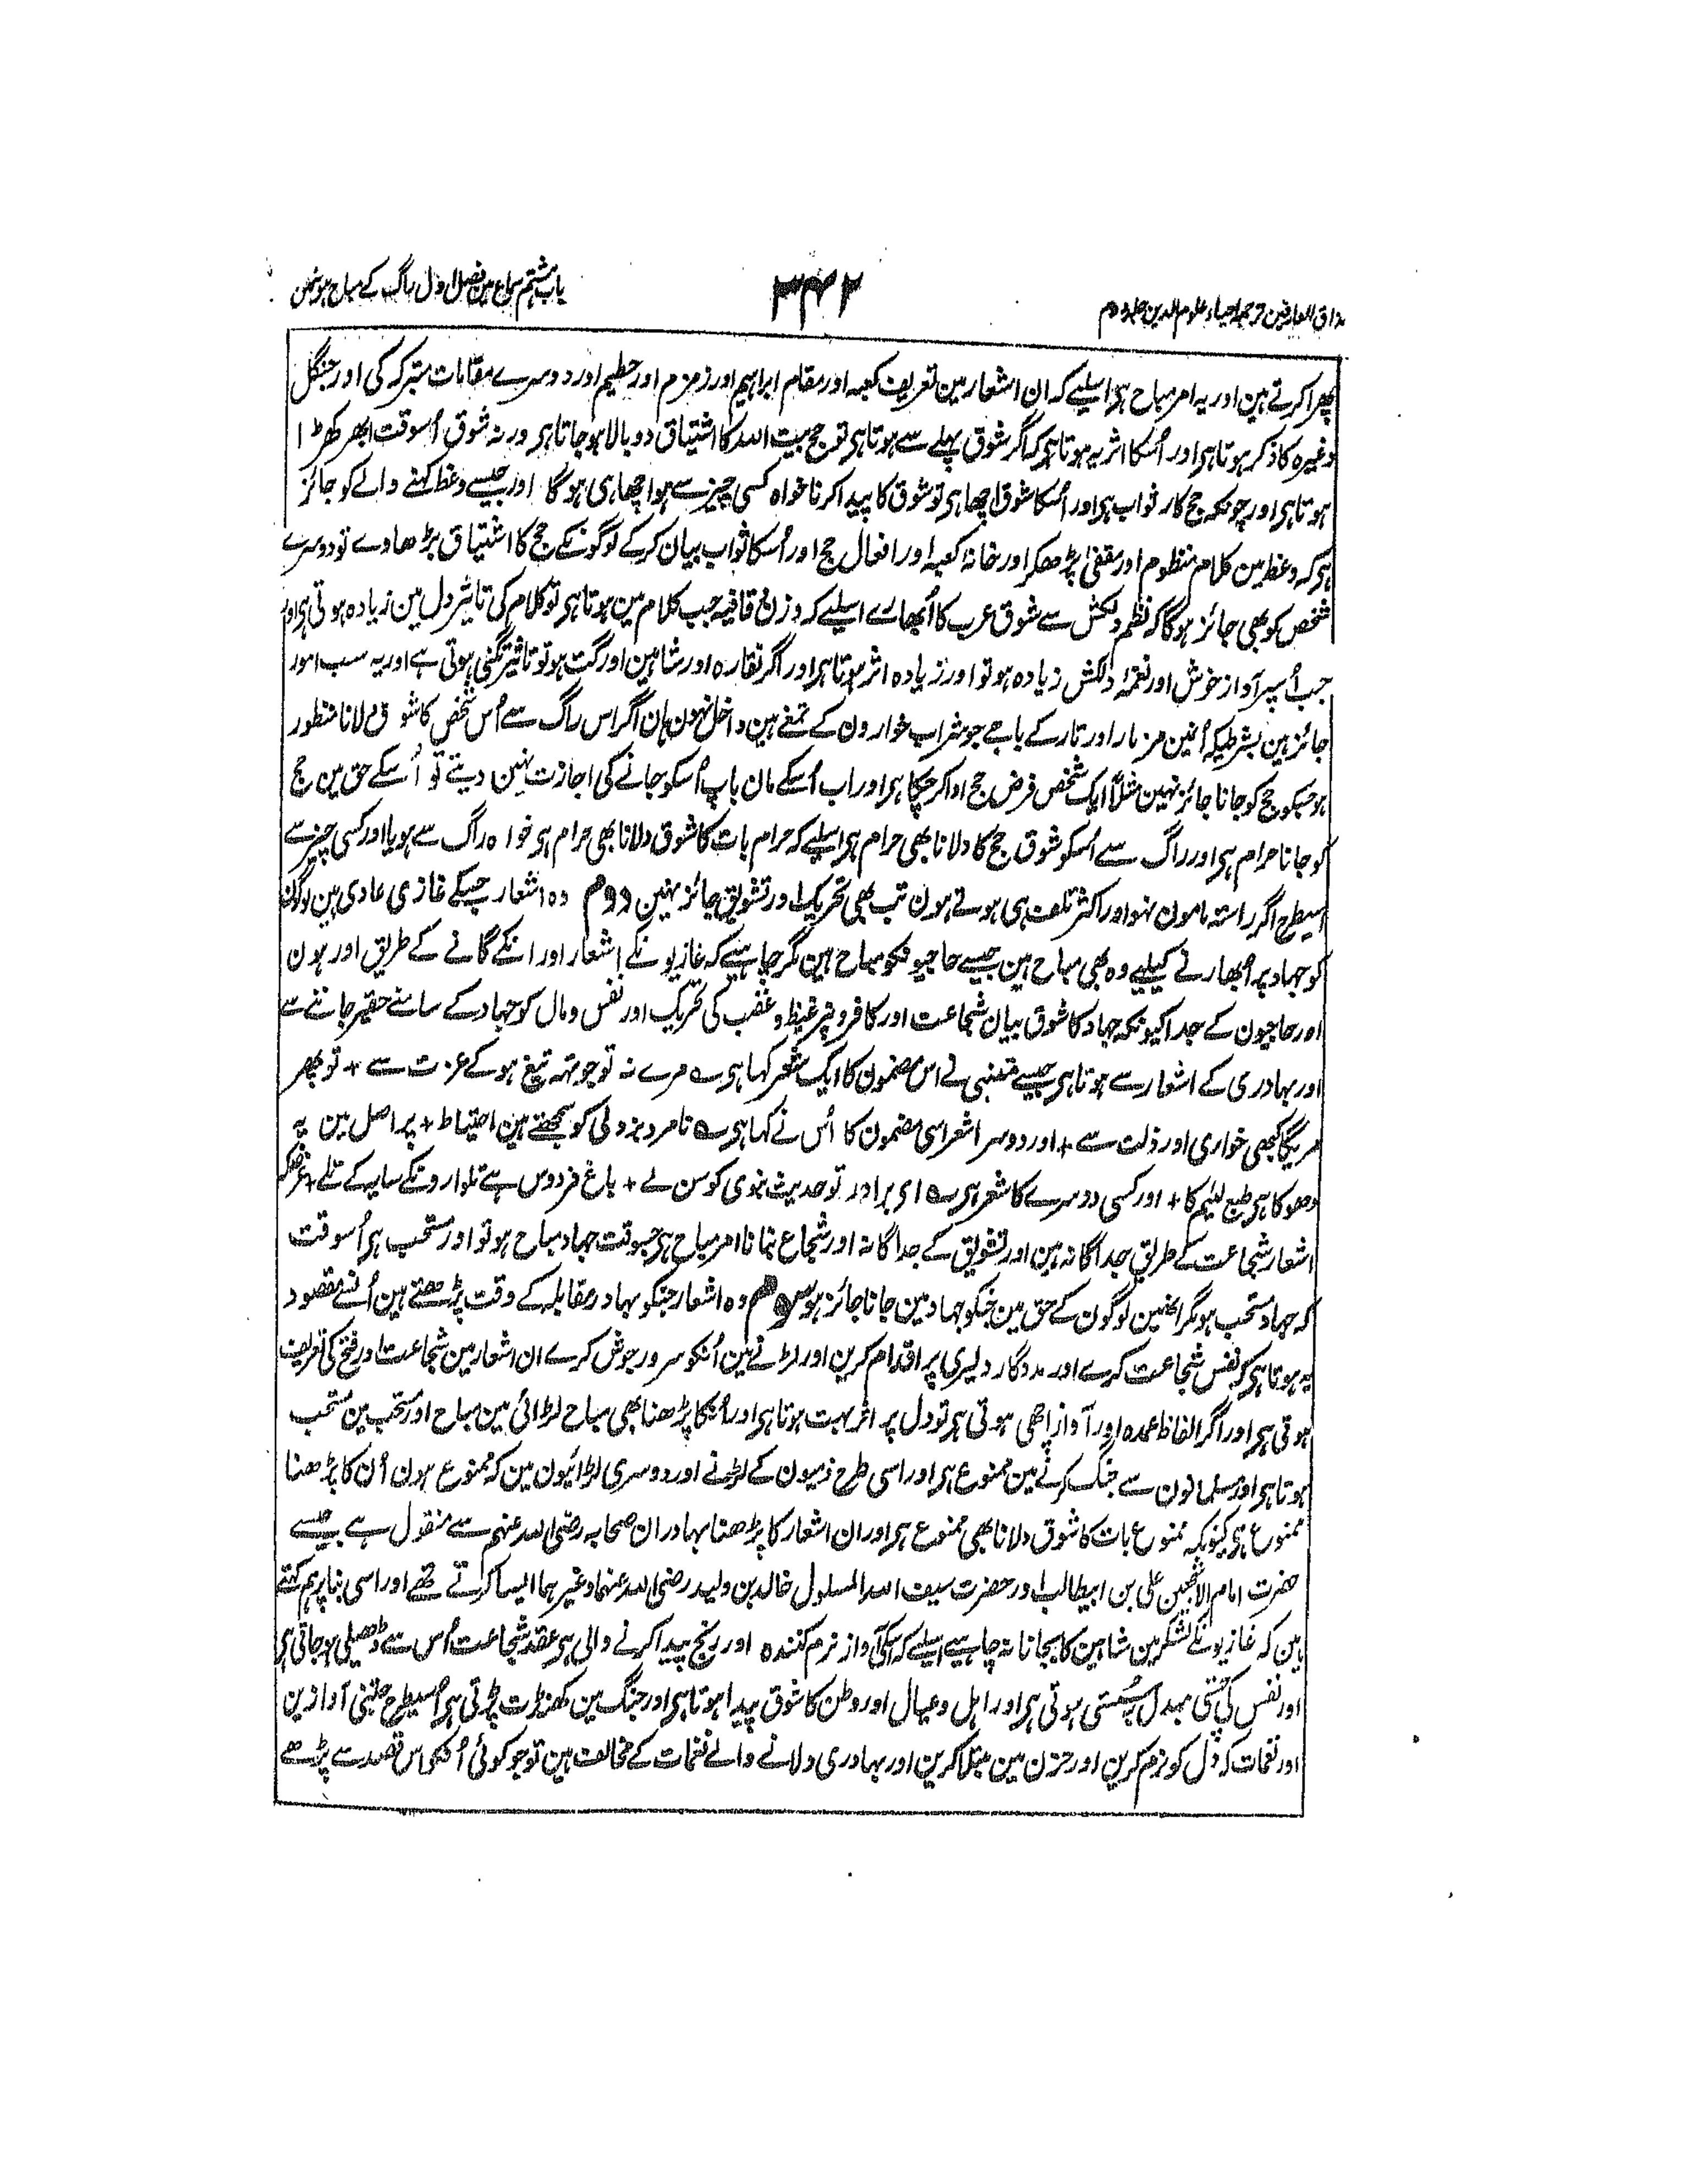 مذاق العارفین ترجمہ احیاء علوم الدین جلد دوم
۳۴۲
باب ہشتم سماع مین فصل اول راگ کے مباح ہونیمین
پھرا کرتے ہین اور یہ امر مباح ہی اسلیے کہ ان اشعار مین تعریف کعبہ اور مقام ابراہیم اور زمزم اور حطیم اور دوسرے مقامات متبرکہ کی اور جنگل
وغیرہ کا ذکر ہوتا ہی اور اُسکا اثر یہ ہوتا ہی کہ اگر شوق پہلے سے ہوتا ہی تو حج بیت اللہ کا اشتیاق دو بالا ہو جاتا ہی ورنہ شوق اُسوقت ابھر کھڑا
ہوتا ہی اور چونکہ حج کار ثواب ہی اور اُسکا شوق اچھا ہی تو شوق کا پیدا کرنا خواہ کسی چیز سے ہو اچھا ہی ہو گا اور جیسے وعظ کہنے والے کو جائز
ہی کہ وعظ مین کلام منظوم اور مقفیٰ پڑھکر اور خانۂ کعبہ اور افعال حج اور اُسکا ثواب بیان کرکے لوگونکے حج کا اشتیاق بڑھادے تو دوسرے
شخص کو بھی جائز ہوگا کہ نظم دلکش سے شوق عرب کا اُبھارے اسلیے کہ وزن و قافیہ جب کلام مین ہوتا ہی تو کلام کی تاثیر دل مین زیادہ ہوتی ہی اور
جب اُسپر آواز خوش اور نغمۂ دلکش زیادہ ہو تو اور زیادہ اثر ہوتا ہی اور اگر نقارہ اور شاہین اور گت ہو تو تاثیر تگنی ہوتی ہے اور یہ سب امور
جائز ہین بشرطیکہ اُنمین مزمار اور تار کے باجے جو شراب خوارون کے تمغے ہین داخل نہون ہان اگر اس راگ سے اُس شخص کا شوق دلانا منظور
ہو جسکو حج کو جانا جائز نہین مثلاً ایک شخص فرض حج ادا کر چکا ہی اور اب اُسکے مان باپ اُسکو جانے کی اجازت نہین دیتے تو اُسکے حق مین حج
کو جانا حرام ہی اور راگ سے اُسکو شوق حج کا دلانا بھی حرام ہی اسلیے کہ حرام بات کا شوق دلانا بھی حرام ہی خواہ راگ سے ہو یا اور کسی چیز سے
اسیطرح اگر راستہ مامون نہو اور اکثر تلف ہی ہوتے ہون تب بھی تحریک اور تشویق جائز نہین دوم وہ اشعار جسکے غازی عادی ہین لوگون
کو جہاد پر اُبھارنے کیلیے وہ بھی مباح ہین جیسے حاجیونکو مباح ہین مگر چاہیے کہ غازیونکے اشعار اور انکے گانے کے طریق اور ہون
اور حاجیون کے جدا کیونکہ جہاد کا شوق بیان شجاعت اور کافرونپر غیظ و غضب کی تحریک اور نفس و مال کو جہاد کے سامنے حقیر جاننے سے
اور بہادری کے اشعار سے ہوتا ہی جیسے متنبی نے اس مضمون کا ایک شعر کہا ہی ؎ مرے نہ تو جو تہہ تیغ ہو کے عزت سے + تو پھر
مریگا کبھی خواری اور ذلت سے + اور دوسرا شعر اسی مضمون کا اُس نے کہا ہی ؎ نامرد بزدلی کو سمجھتے ہین احتیاط + پر اصل مین یہ
دھوکا ہی طبع لئیم کا + اور کسی دوسرے کا شعر ہی ؎ ای برادر تو حدیث نبوی کو سن لے + باغ فردوس ہے تلوارونکے سایہ کے تلے + غرضکہ
اشعار شجاعت کے طریق جداگانہ ہین اور تشویق کے جداگانہ اور شجاع بنانا امر مباح ہی جسوقت جہاد مباح ہو تو اور مستحب ہی اُسوقت
کہ جہاد مستحب ہو مگر انھین لوگون کے حق مین جنکو جہاد مین جانا جائز ہو سوم وہ اشعار جنکو بہادر مقابلہ کے وقت پڑھتے ہین اُنسے مقصود
یہ ہوتا ہی کہ نفس شجاعت کرے اور مددگار دلیری پر اقدام کرین اور لڑانے مین اُنکو سرور جوش کرے ان اشعار مین شجاعت اور فتح کی تعریف
ہوتی ہی اور اگر الفاظ عمدہ اور آواز اچھی ہوتی ہی تو دل پر اثر بہت ہوتا ہی اور اُنکا پڑھنا بھی مباح لڑائی مین مباح اور مستحب مین مستحب
ہوتا ہی اور مسلمانون سے جنگ کرنے مین ممنوع ہی اور اسی طرح ذمیون کے لڑنے اور دوسری لڑائیون مین کہ ممنوع ہون اُن کا پڑھنا
ممنوع ہی کیونکہ ممنوع بات کا شوق دلانا بھی ممنوع ہی اور ان اشعار کا پڑھنا بہادران صحابہ رضی اللہ عنہم سے منقول ہے جیسے
حضرت امام الاشجعین علی بن ابیطالب اور حضرت سیف اللہ المسلول خالد بن ولید رضی اللہ عنہما وغیرہما ایسا کرتے تھے اور اسی بنا پر ہم کہتے
ہین کہ غازیونکے لشکر مین شاہین کا بجانا نہ چاہیے اسلیے کہ اسکی آواز نرم کنندہ اور رنج پیدا کرنے والی ہی عقد شجاعت اُس سے ڈھیلی ہو جاتی ہی
اور نفس کی چستی مبدل بہ سُستی ہوتی ہی اور اہل و عیال اور وطن کا شوق پیدا ہوتا ہی اور جنگ مین کھنڈت پڑتی ہی اُسیطرح جتنی آوازین
اور نغمات کہ دل کو نرم کرین اور حزن مین مبتلا کرین اور بہادری دلانے والے نغمات کے مخالف ہین تو جو کوئی اُنکو اس قصد سے پڑھے